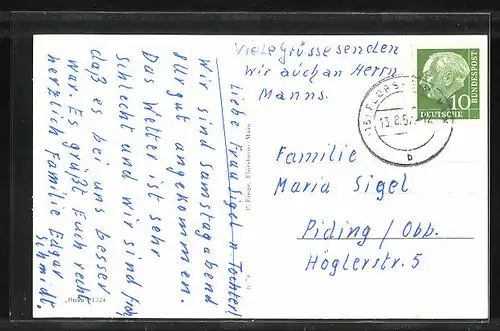 Liebe Frau Sigel u. Tochter!
Wir sind Samstagabend
gut angekommen.
Das Wetter ist sehr
schlecht und wir sind froh
daß es bei uns besser
war. Es grüßt Euch recht
herzlich Familie Edgar
Schmidt.
Viele Grüsse senden
Wir auch an Herrn
Manns.
10
DEUTSCHE
BUNDESPOST
Familie
Maria Sigel
Piding / Obb.
Höglerstr. 5